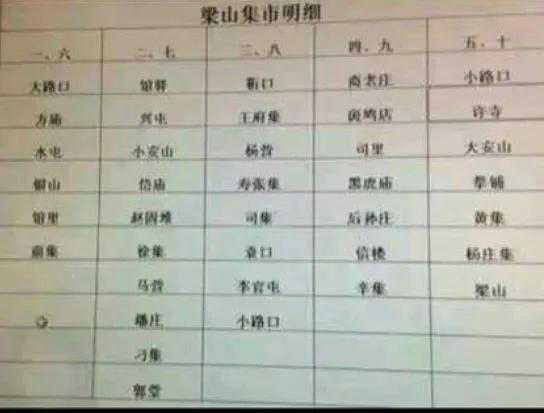 梁山集市明细
一、六 二、七 三、八 四、九 五、十
大路口 馆驿 靳口 商老庄 小路口
方庙 兴屯 王府集 斑鸠店 许寺
水屯 小安山 杨营 司里 大安山
银山 岱庙 寿张集 黑虎庙 拳铺
馆里 赵固堆 司集 后孙庄 黄集
徐集 袁口 信楼 杨庄集
马营 李官屯 辛集 梁山
小路口
刁集
郭堂